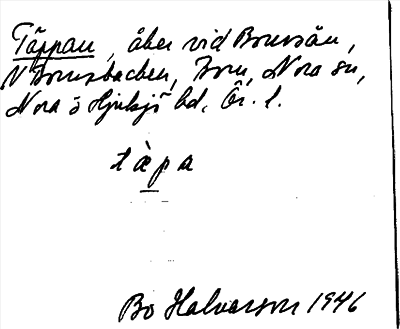 Täppan, åker vid Borrsån,
V Borrsbacken, Born, Nora sn,
Nora o Hjulsjö bd, Ör. l.
tàpa
Bo Halvarson 1946